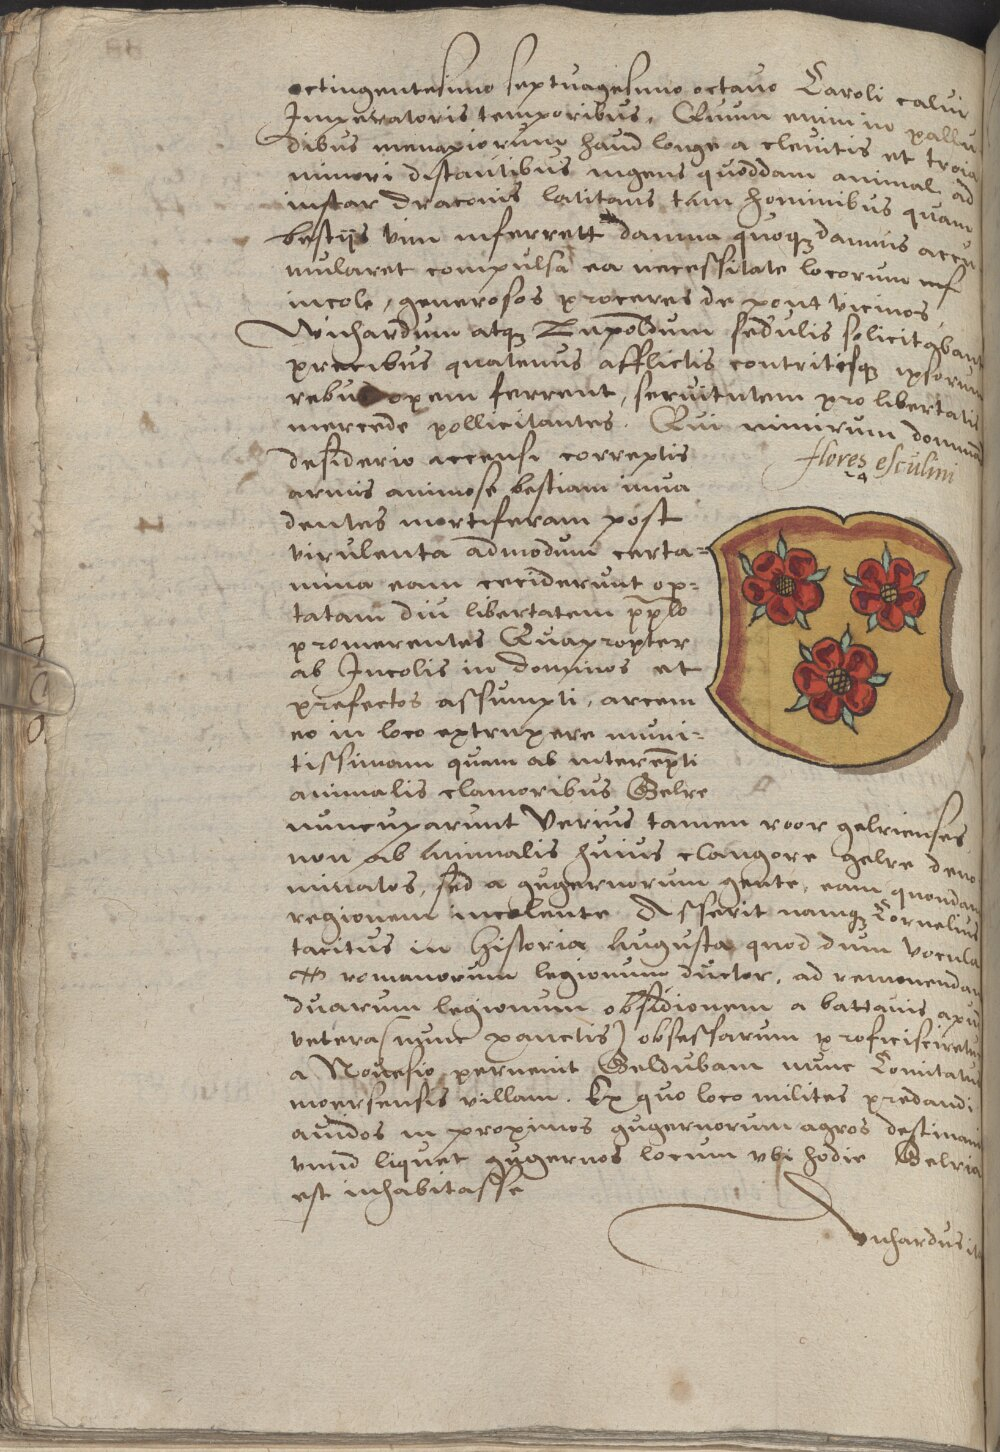 octingentesimo septuagesimo octauo Caroli calui
Imperatoris temporibus. Quum enim in pallu
dibus menapiorum haud longe a cleuitis et troia
minori distantibus ingens quoddam animal ad
instar draconis latitans tam hominibus quam
bestijs vim inferrett damna quoqꝫ damnis accu
mularet compulsa ea necessitate locorum
incole, generosos proceres de pont vicinos
Wichardum atqꝫ Lupoldum sedulis solicitabant
precibus quatenus afflictis contritisqꝫ ipsorum
rebus opem ferrent, seruitutem pro libertatis
mercede pollicitantes. Qui nimirum
desiderio accensi correptis
flores esculini
armis animose bestiam inua
dentes mortiferam post
virulenta admodum certa=
mina eam ceciderunt op=
tatam diu libertatem pplo
promerentes Quapropter
ab Incolis in dominos et
prefectos assumpti, arcem
eo in loco extruxere muni=
tissimam quam ab interempti
animalis clamoribus Gelre
nuncuparunt Verius tamen roor gelrienses
non ab Animalis huius clangore gelre deno
minatos, sed a gugernorum gente, eam quondam
regionem incolente Asserit namqꝫ Cornelius
tacitus in Historia Augusta quod dum vocula
romanorum legionum ductor, ad remouendam
duarum legionum obsidionem a battauis apud
vetera (nunc xanctis) obsessarum proficisciretur
a Nouesio peruenit Geldubam nunc Comitatus
moersensis villam. Ex quo loco milites predandi
auidos in proximos gugernorum agros destinauit
vnnd liquet gugernos locum vbi hodie Gelria
est inhabitasse
Wichardus